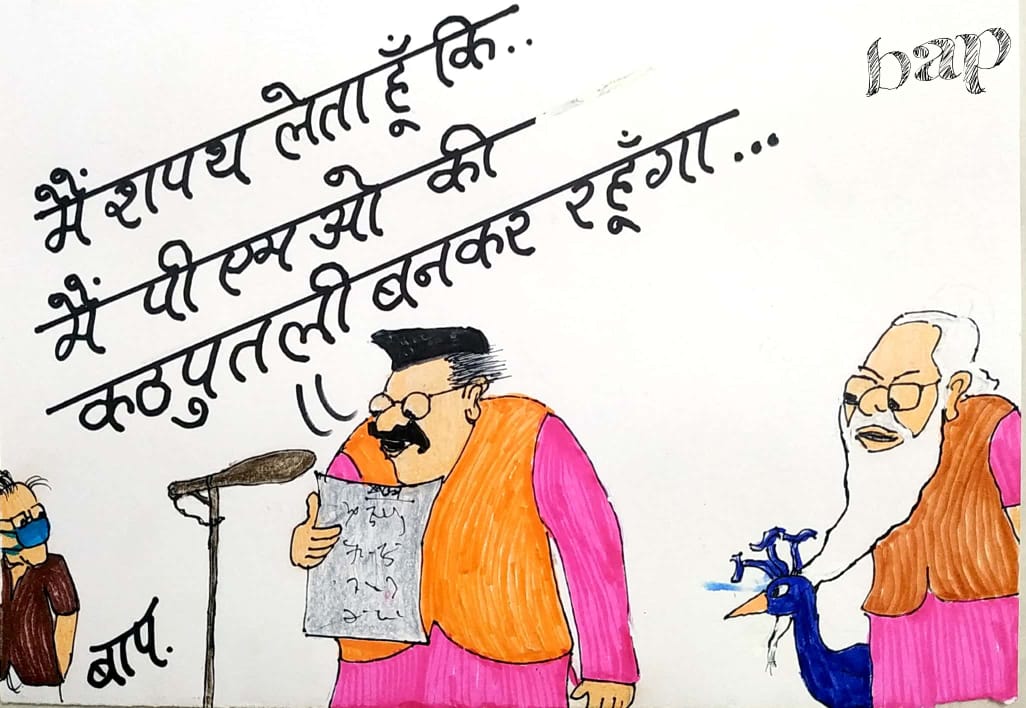 मैं शपथ लेता हूँ कि..
मैं पी एम ओ की
कठपुतली बनकर रहूँगा...
bap
बाप.